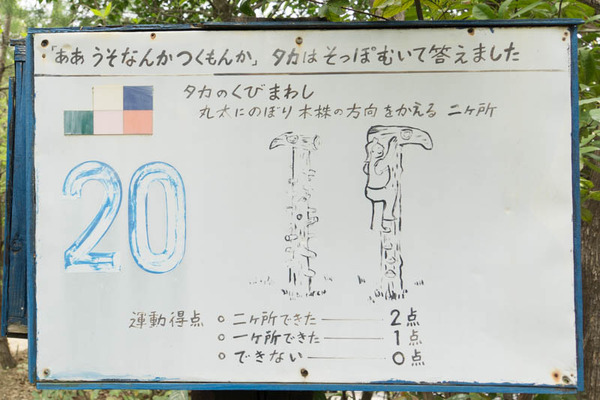 「ああ うそなんか つくもんか」 タカは そっぽ むいて 答えました
タカのくびまわし
丸太にのぼり 木株の方向をかえる 二ヶ所
20
運動得点 ○ 二ヶ所できた 2点
○ 一ヶ所できた 1点
○ できない 0点